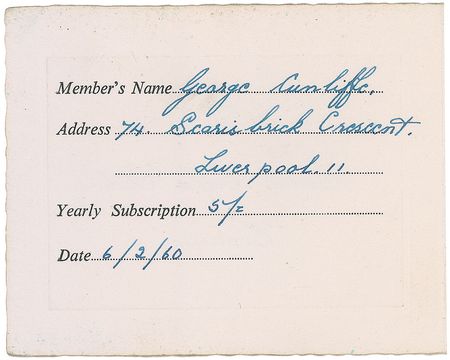 Member's Name George Cunliffe,
Address 74. Scarisbrick Crescent.
Liverpool. 11.
Yearly Subscription 5/=
Date 6/2/60